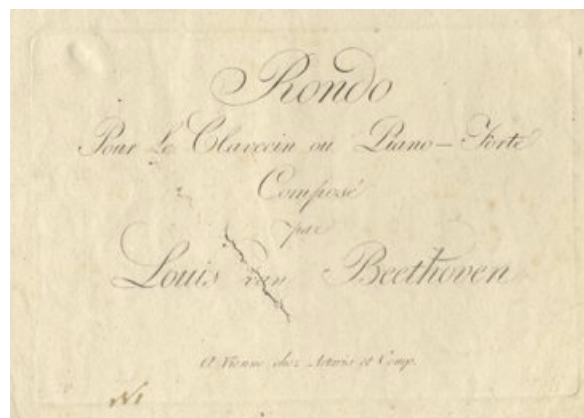 Rondo
Pour Le Clavecin ou Piano-Forte
Composé
par
Louis van Beethoven
A Vienne chez Artaria et Comp.